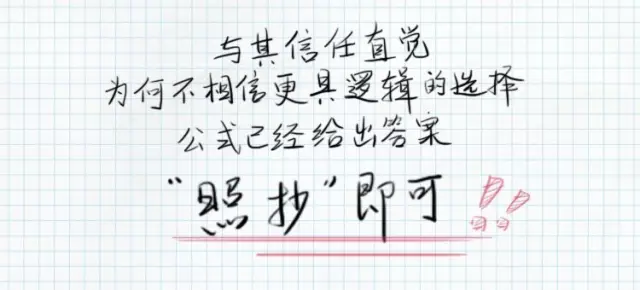 与其信任直觉
为何不相信更具逻辑的选择
公式已经给出答案
“照抄”即可!!